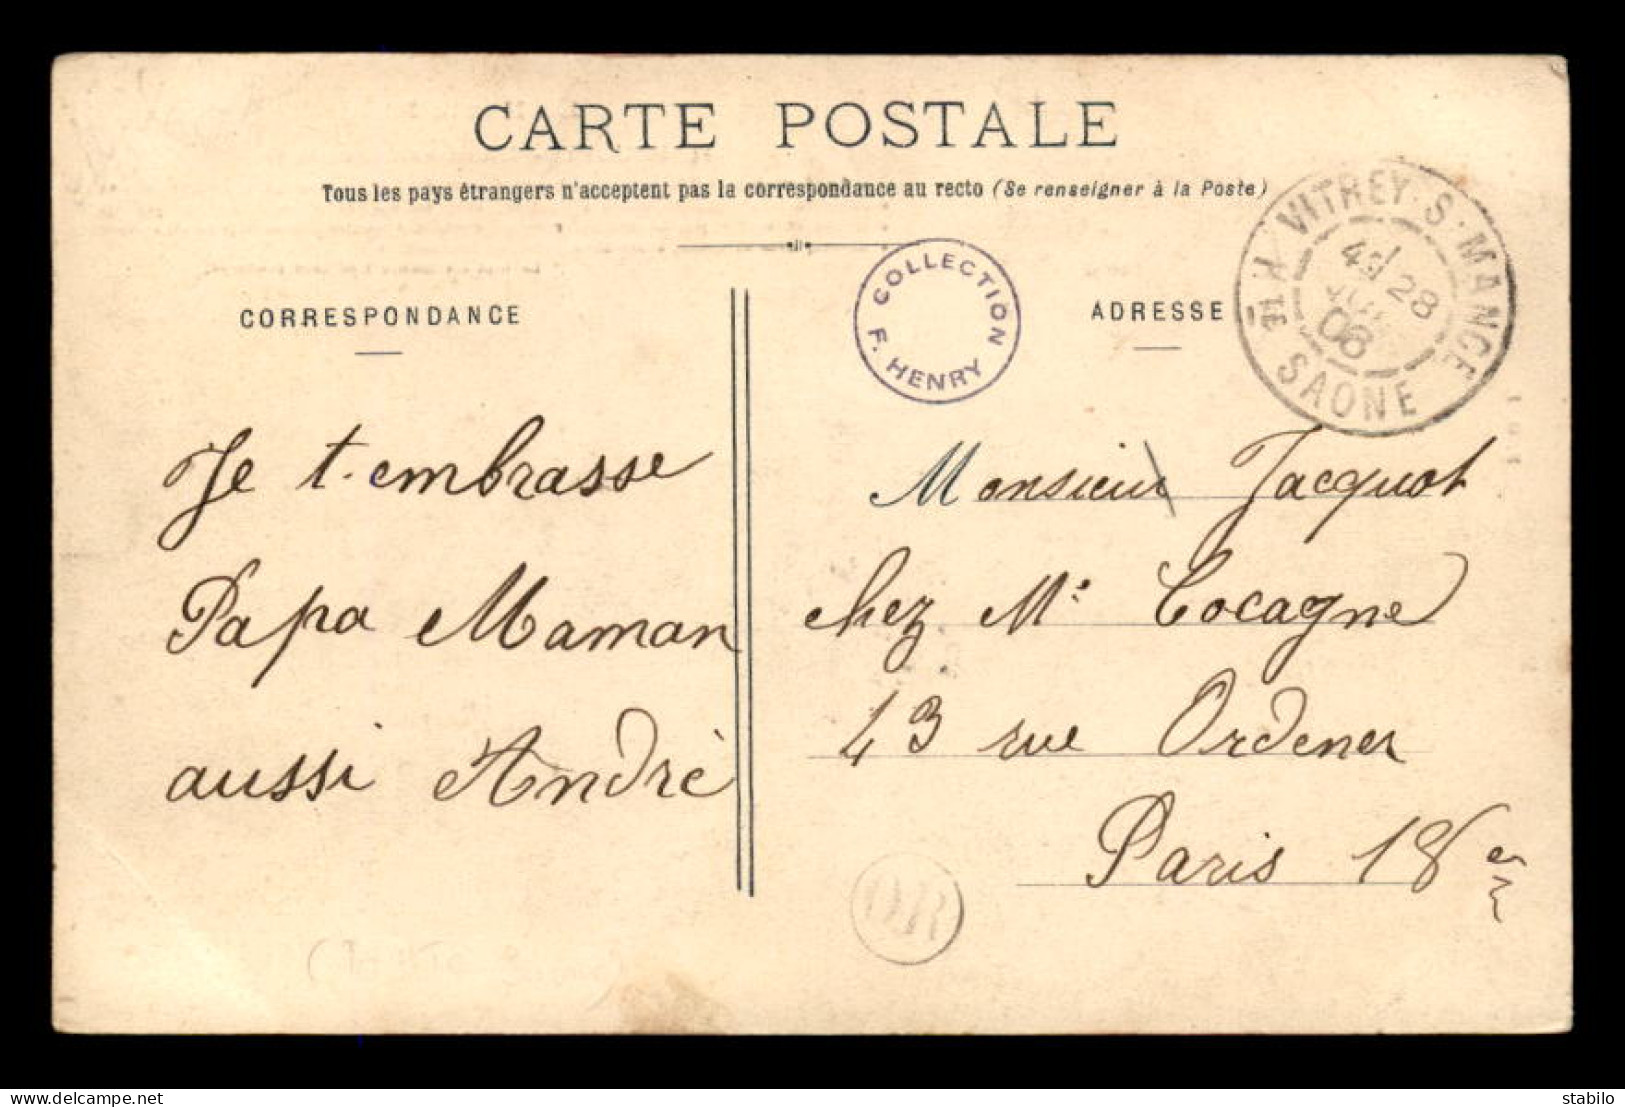 CARTE POSTALE
Tous les pays étrangers n'acceptent pas la correspondance au recto (Se renseigner à la Poste)
CORRESPONDANCE
COLLECTION F. HENRY
ADRESSE
VITREY-S-MANCE
28
06
Hte SAONE
Je t.embrasse
Papa Maman
aussi André
Monsieur Jacquot
chez Mr Cocagne
43 rue Ordener
Paris 18e
OR
delcampe.net
stabilo